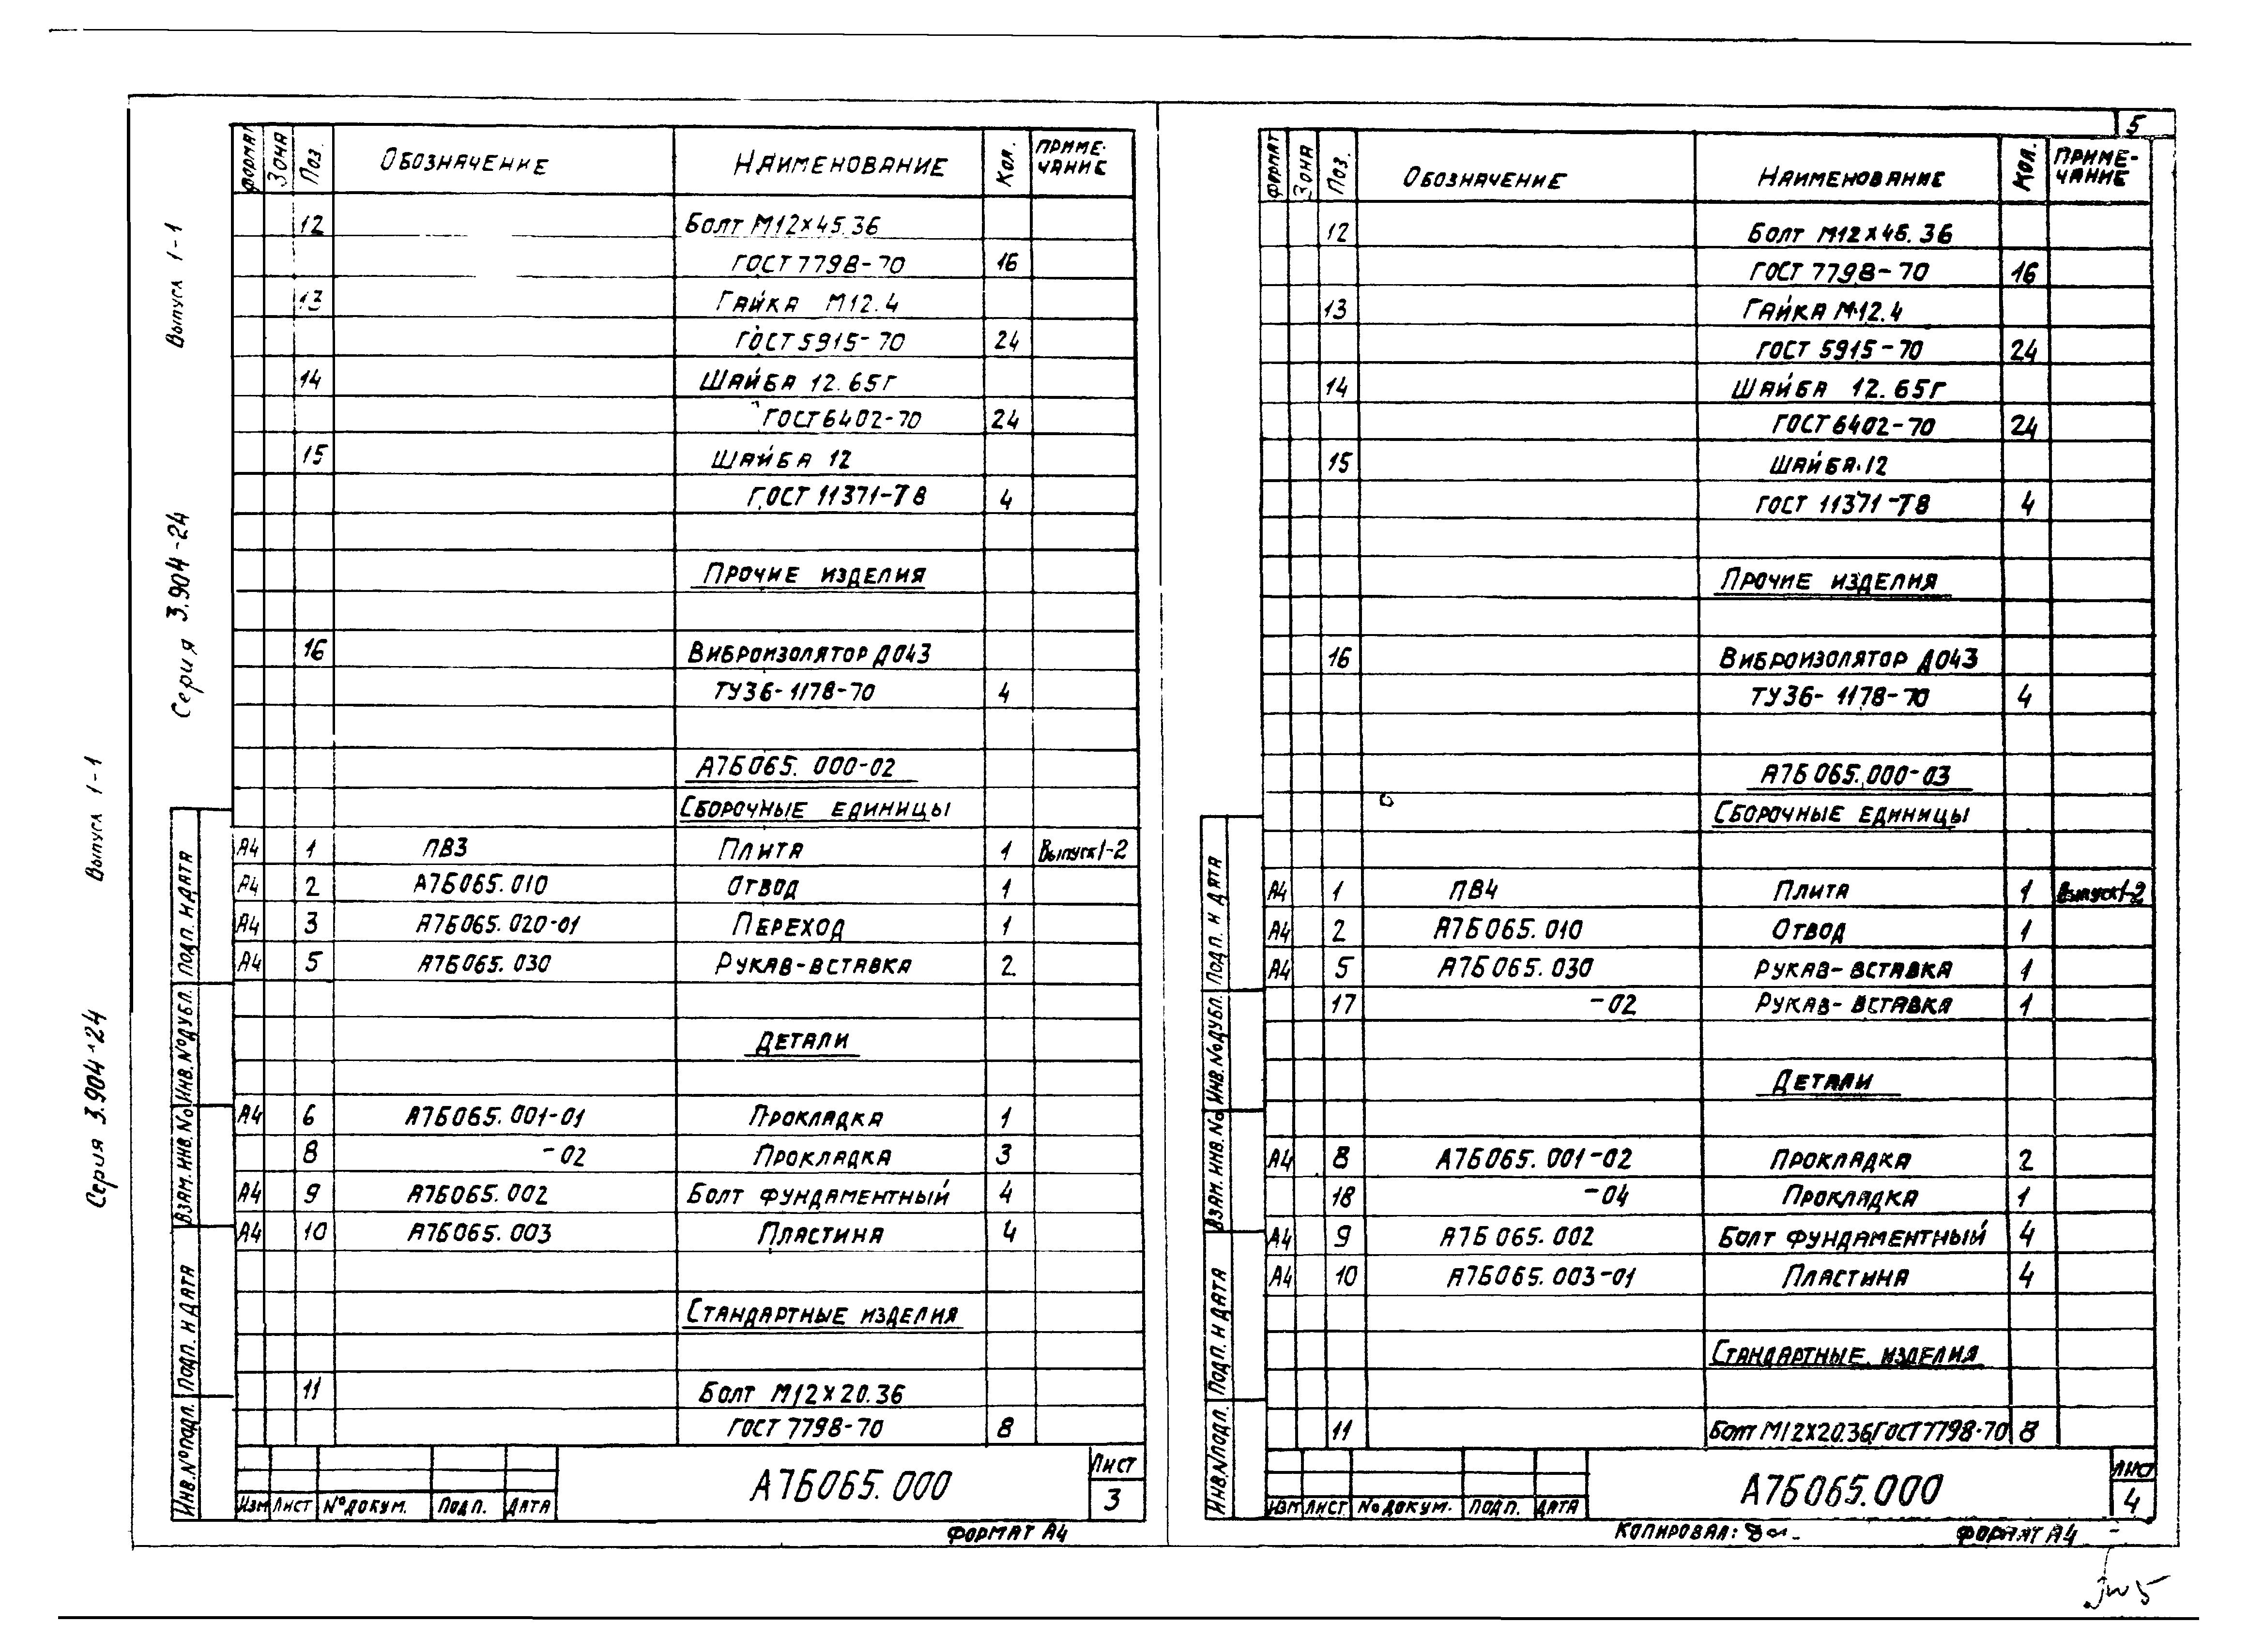 5
Выпуск 1-1
Серия 3.904-24
Выпуск 1-1
Серия 3.904-24
Формат Зона Поз. Обозначение Наименование Кол. Примечание
12 Болт М12×45.36
ГОСТ 7798-70 16
13 Гайка М12.4
ГОСТ 5915-70 24
14 Шайба 12.65Г
ГОСТ 6402-70 24
15 Шайба 12
ГОСТ 11371-78 4
Прочие изделия
16 Виброизолятор Д043
ТУ36-1178-70 4
А7Б065.000-02
Сборочные единицы
А4 1 ПВ3 Плита 1 Выпуск 1-2
А4 2 А7Б065.010 Отвод 1
А4 3 А7Б065.020-01 Переход 1
А4 5 А7Б065.030 Рукав-вставка 2
Детали
А4 6 А7Б065.001-01 Прокладка 1
8 -02 Прокладка 3
А4 9 А7Б065.002 Болт фундаментный 4
А4 10 А7Б065.003 Пластина 4
Стандартные изделия
11 Болт М12×20.36
ГОСТ 7798-70 8
Инв.№подл. Подп. и дата Взам.инв.№ Инв.№дубл. Подп. и дата
Изм Лист №докум. Подп. Дата
А7Б065.000
Лист
3
Формат А4
Формат Зона Поз. Обозначение Наименование Кол. Примечание
12 Болт М12×45.36
ГОСТ 7798-70 16
13 Гайка М12.4
ГОСТ 5915-70 24
14 Шайба 12.65Г
ГОСТ 6402-70 24
15 Шайба 12
ГОСТ 11371-78 4
Прочие изделия
16 Виброизолятор Д043
ТУ36-1178-70 4
А7Б065.000-03
Сборочные единицы
А4 1 ПВ4 Плита 1 Выпуск 1-2
А4 2 А7Б065.010 Отвод 1
А4 5 А7Б065.030 Рукав-вставка 1
17 -02 Рукав-вставка 1
Детали
А4 8 А7Б065.001-02 Прокладка 2
18 -04 Прокладка 1
А4 9 А7Б065.002 Болт фундаментный 4
А4 10 А7Б065.003-01 Пластина 4
Стандартные изделия
11 Болт М12×20.36 ГОСТ 7798-70 8
Инв.№подл. Подп. и дата Взам.инв.№ Инв.№дубл. Подп. и дата
Изм Лист №докум. Подп. Дата
А7Б065.000
Лист
4
Копировал:
Формат А4